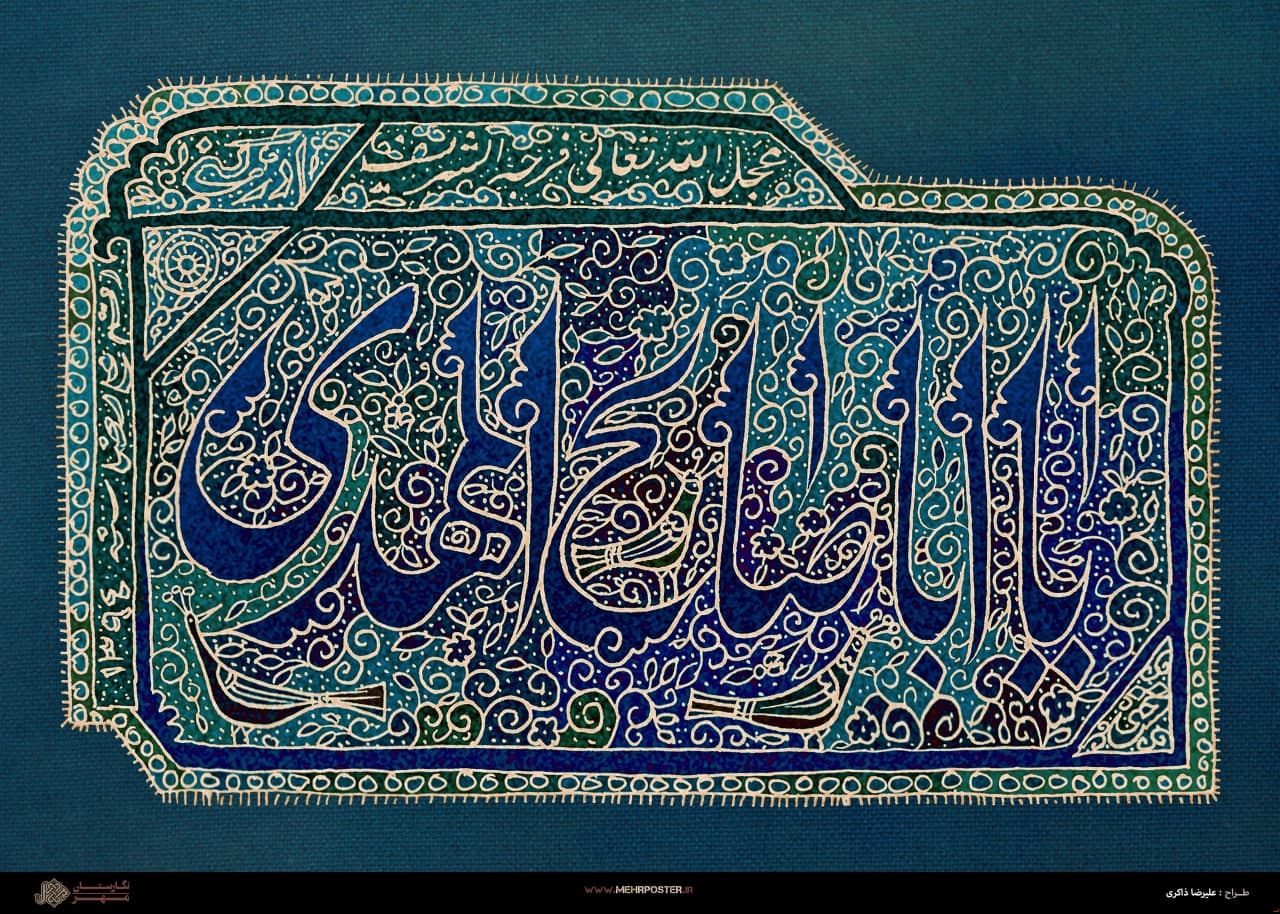 عجل الله تعالی فرجه الشریف
ادرکنی
یا اباصالح المهدی
۱۳۹۴
طراح : علیرضا ذاکری
WWW.MEHRPOSTER.IR
نگارستان
مهر